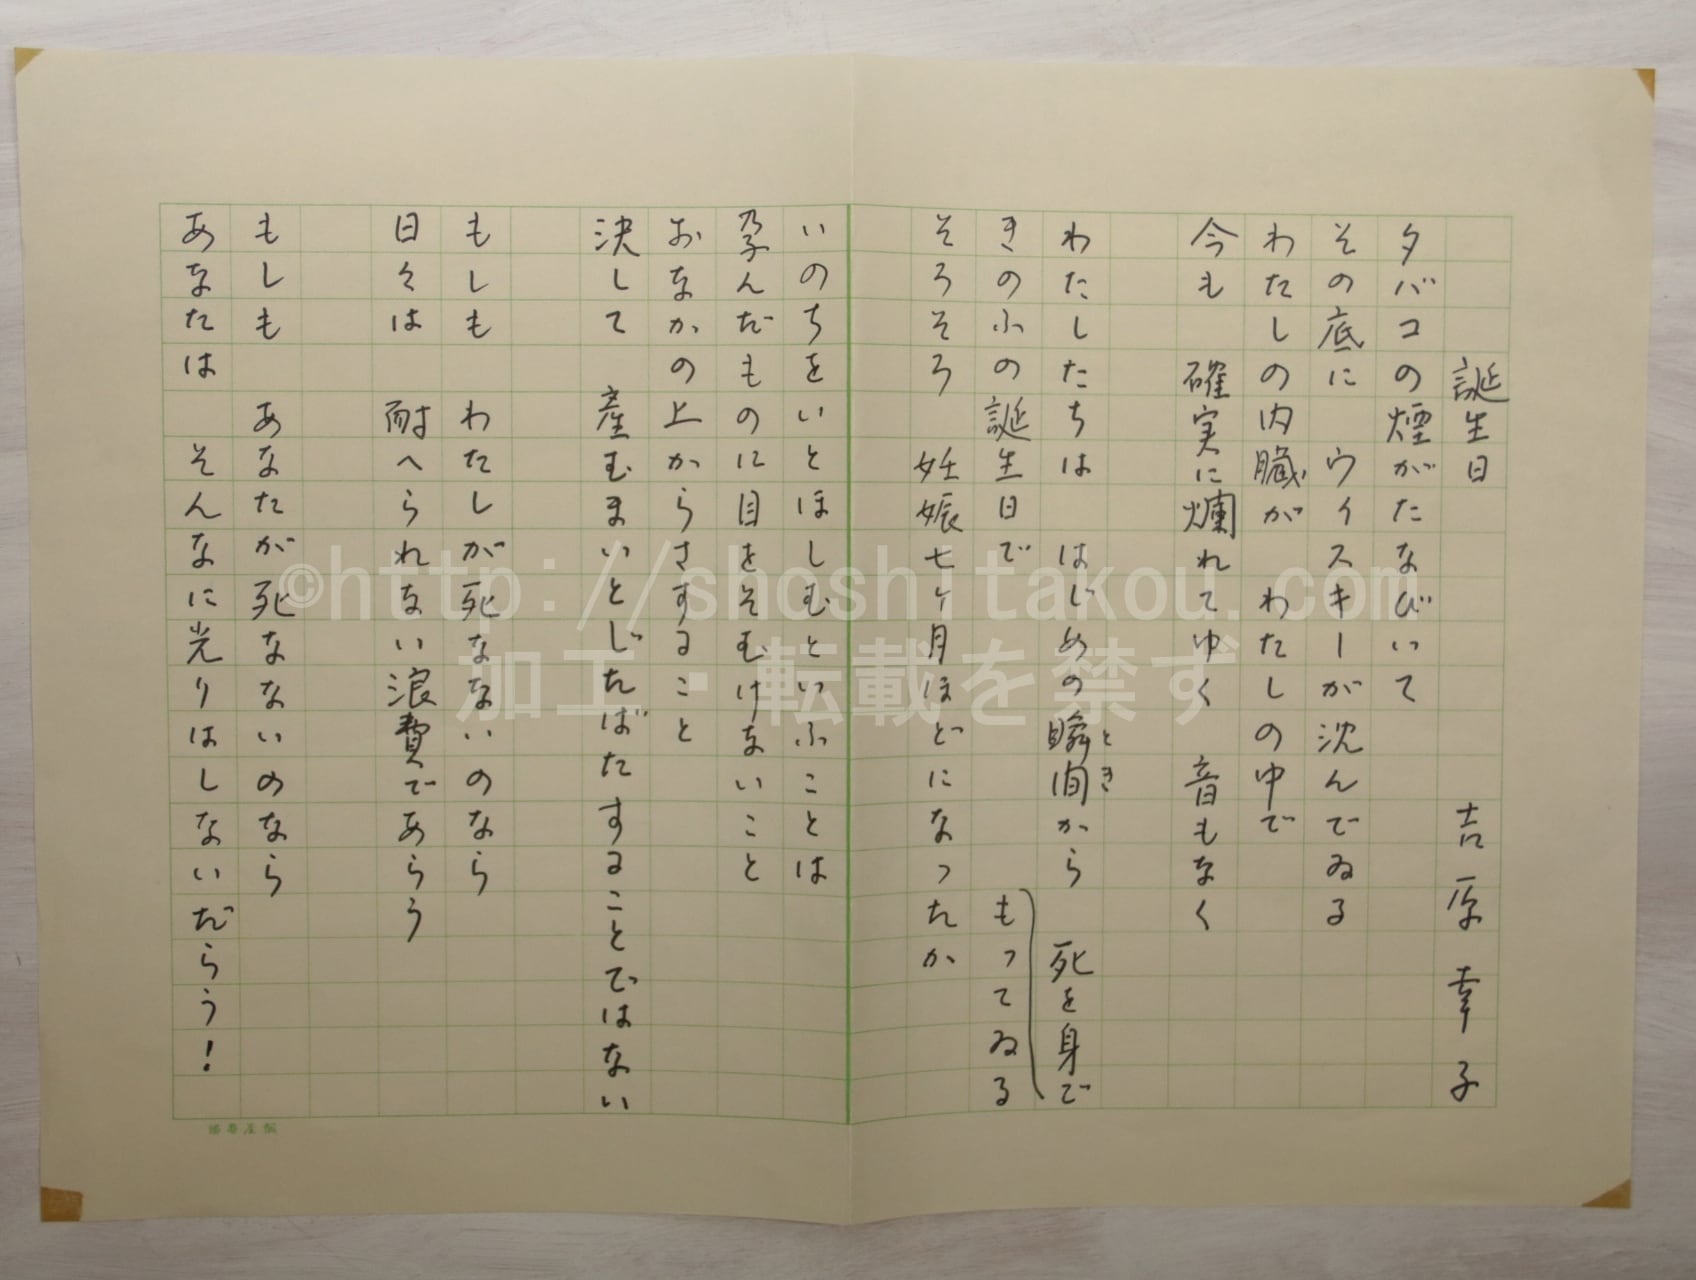 誕生日 吉原幸子
タバコの煙がたなびいて
その底に ウイスキーが沈んでゐる
わたしの内臓が わたしの中で
今も 確実に爛れてゆく 音もなく
わたしたちは はじめの瞬間から 死を身で
とき
もってゐる
きのふの誕生日で
そろそろ 妊娠七ヶ月ほどになったか
いのちをいとほしむといふことは
孕んだものに目をそむけないこと
おなかの上からさすること
決して 産むまいとじたばたすることではない
もしも わたしが死なないのなら
日々は 耐へられない浪費であらう
もしも あなたが死なないのなら
あなたは そんなに光りはしないだらう!
©http://shoshitakou.com
加工・転載を禁ず